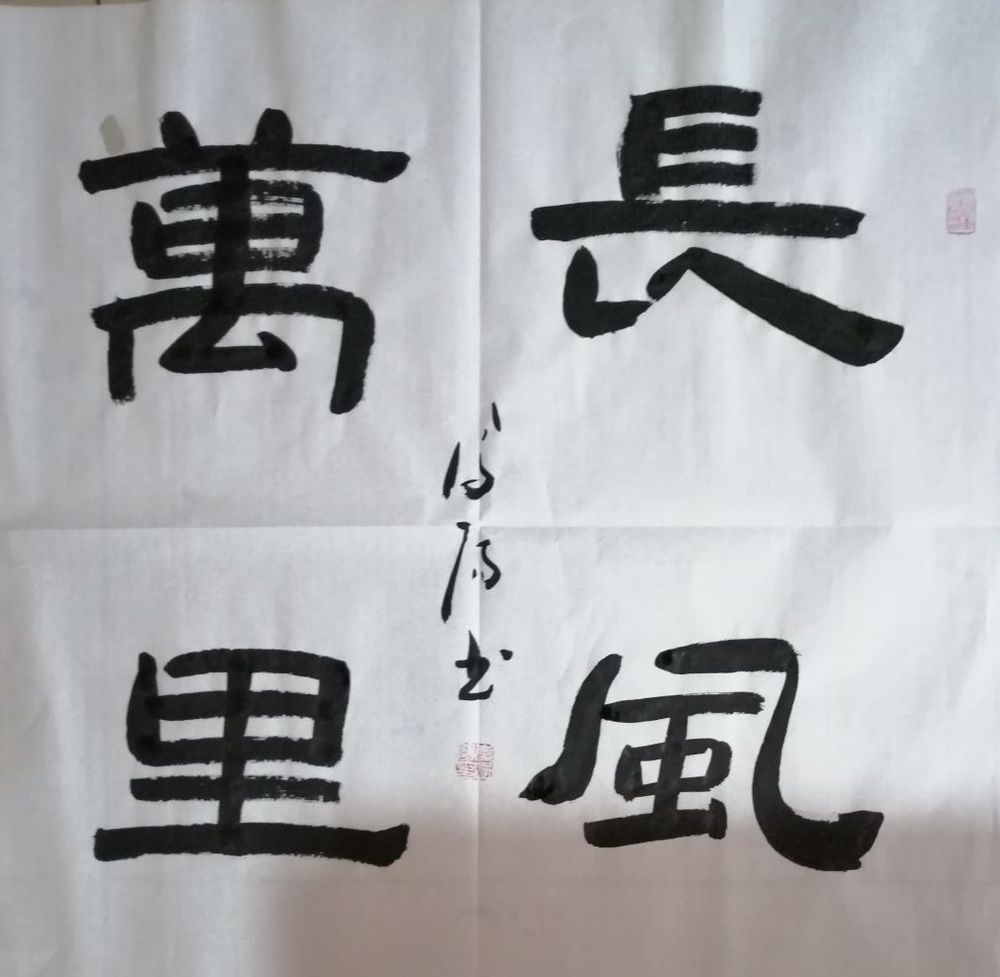 長風
萬里
书